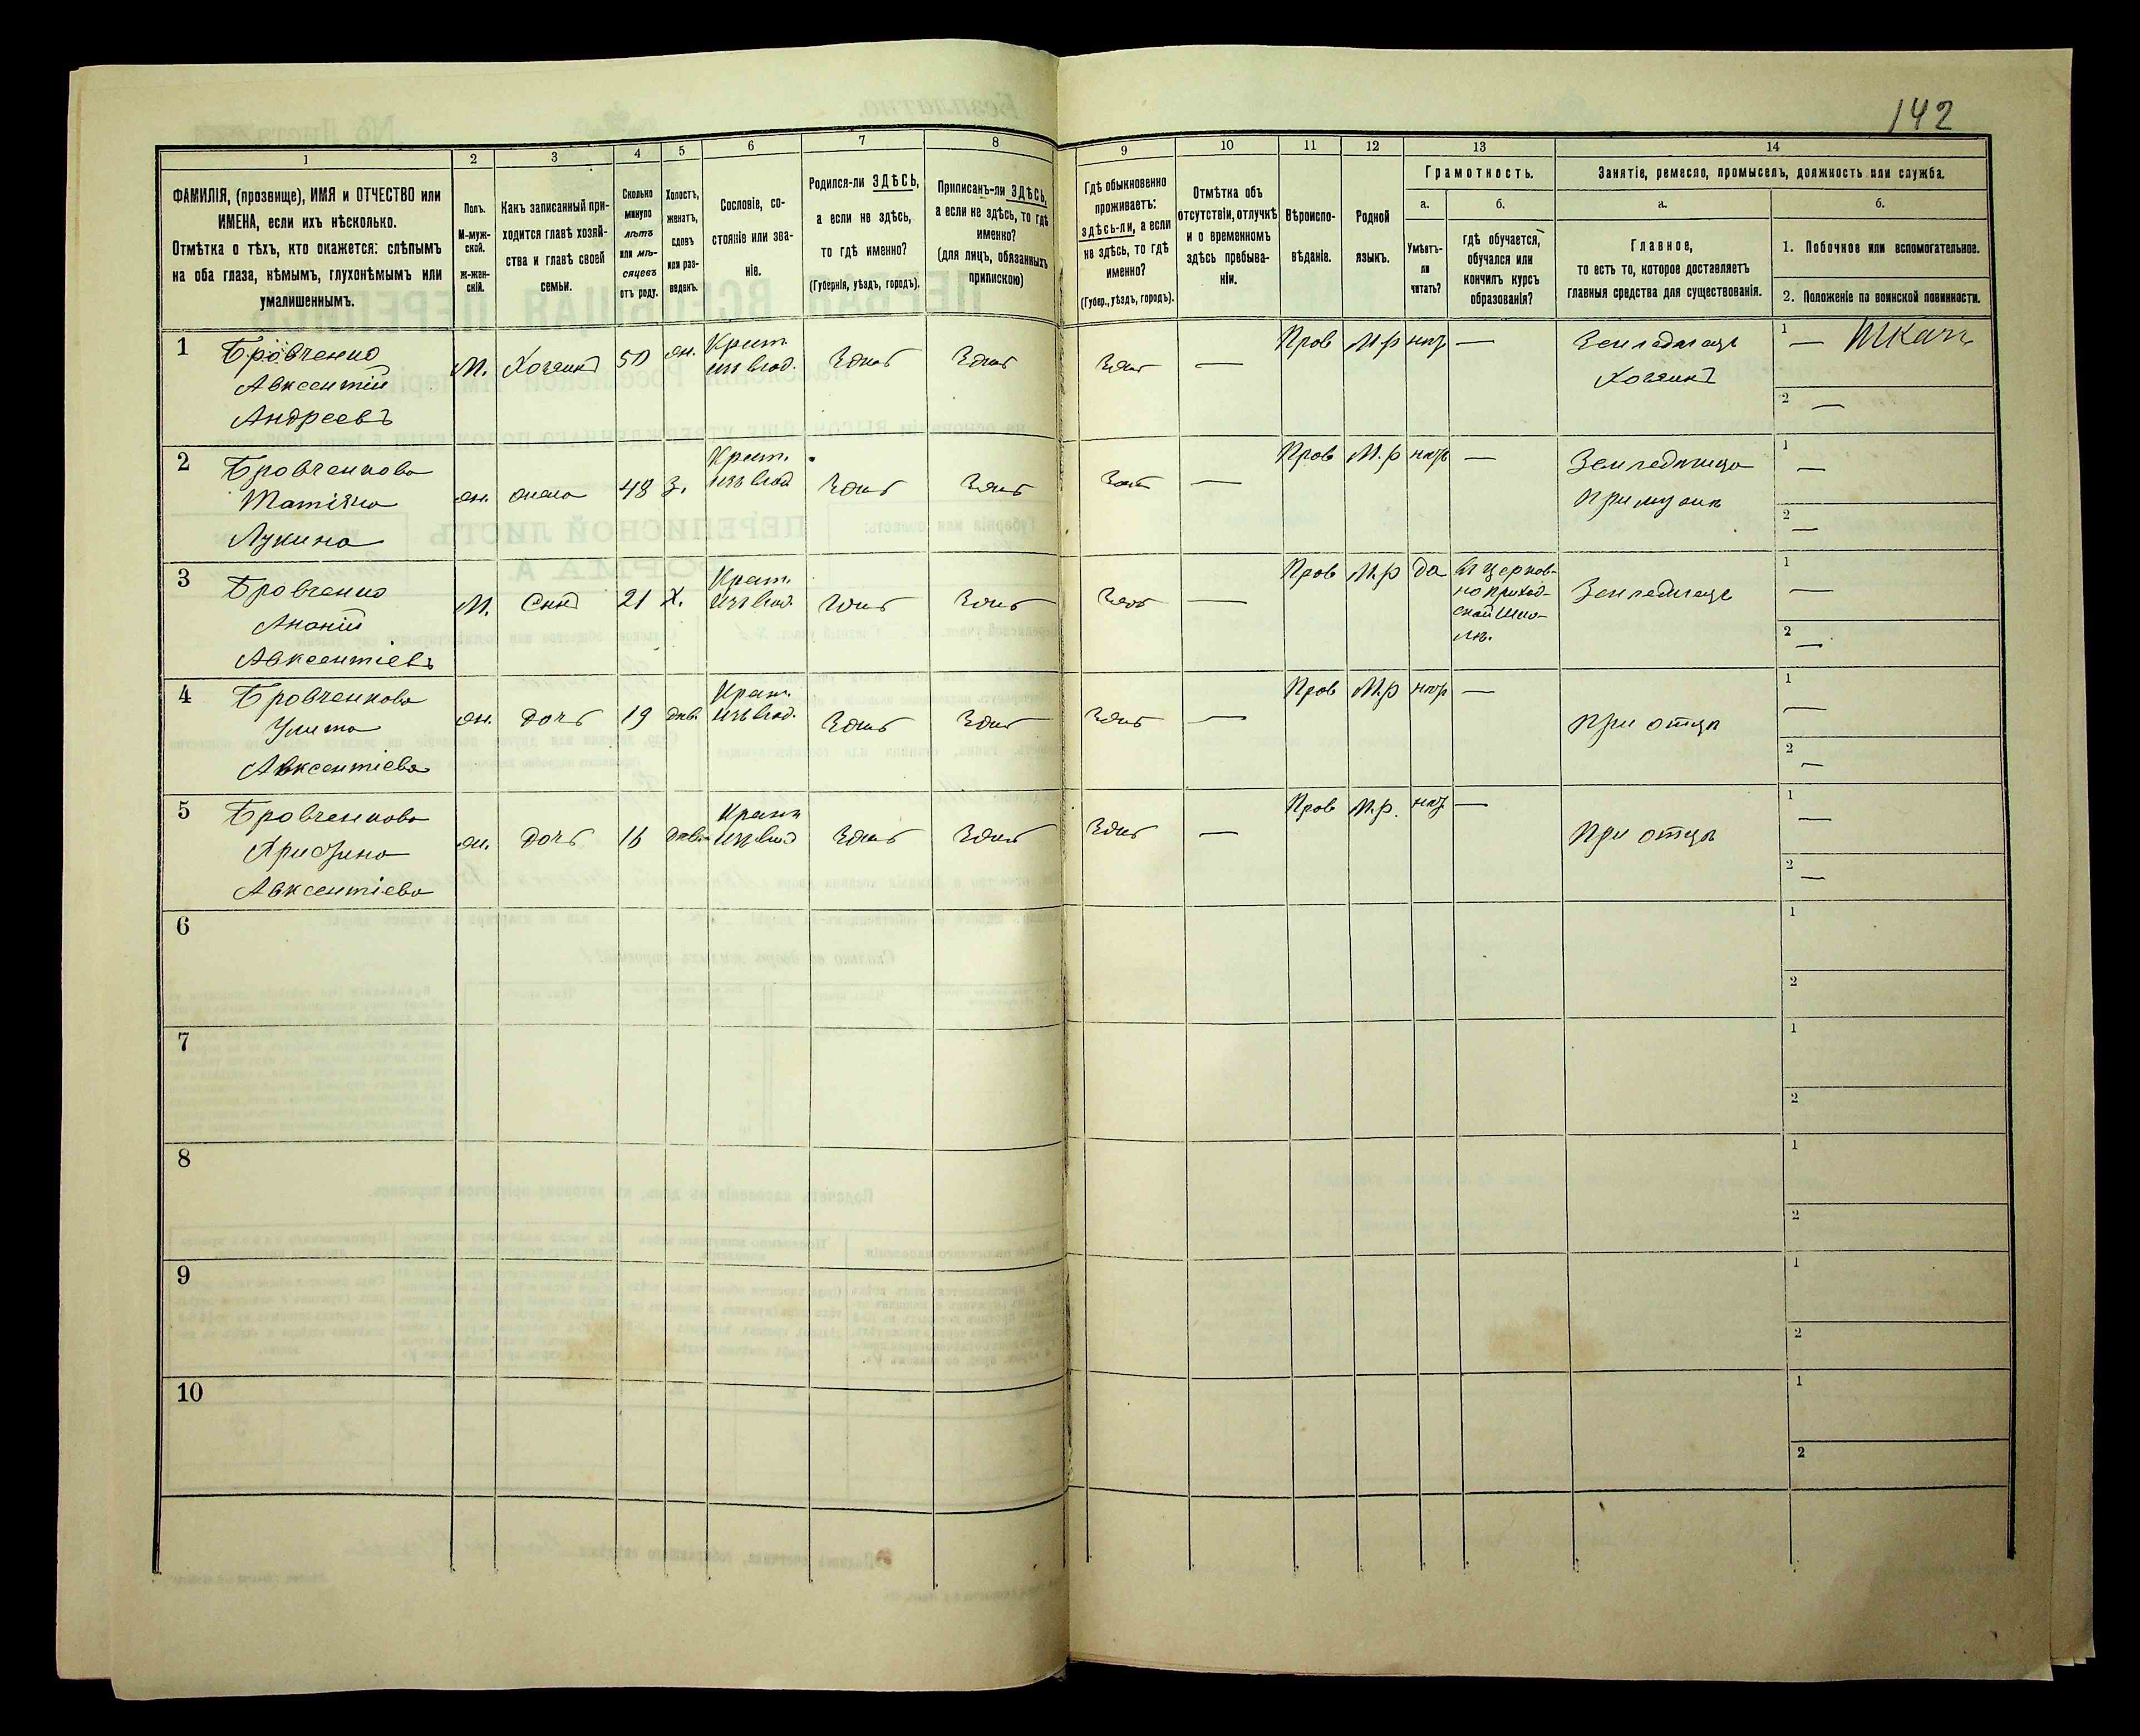 142
1
2
3
4
5
6
7
8
9
10
11
12
13
14
ФАМИЛІЯ, (прозвище), ИМЯ и ОТЧЕСТВО или
ИМЕНА, если ихъ нѣсколько.
Отмѣтка о тѣхъ, кто окажется: слѣпымъ
на оба глаза, нѣмымъ, глухонѣмымъ или
умалишеннымъ.
Полъ.
М-муж-
ской.
ж-жен-
скій.
Какъ записанный при-
ходится главѣ хозяй-
ства и главѣ своей
семьи.
Сколько
минуло
лѣтъ
или мѣ-
сяцевъ
отъ роду.
Холостъ,
женатъ,
вдовъ
или раз-
веденъ.
Сословіе, со-
стояніе или зва-
ніе.
Родился-ли ЗДѢСЬ,
а если не здѣсь,
то гдѣ именно?
(Губернія, уѣздъ, городъ).
Приписанъ-ли ЗДѢСЬ,
а если не здѣсь, то гдѣ
именно?
(для лицъ, обязанныхъ
припискою)
Гдѣ обыкновенно
проживаетъ:
здѣсь-ли, а если
не здѣсь, то гдѣ
именно?
(Губер., уѣздъ, городъ).
Отмѣтка объ
отсутствіи, отлучкѣ
и о временномъ
здѣсь пребыва-
ніи.
Вѣроиспо-
вѣданіе.
Родной
языкъ.
Грамотность.
а.
Умѣетъ-
ли
читать?
б.
гдѣ обучается,
обучался или
кончилъ курсъ
образованія?
Занятіе, ремесло, промыселъ, должность или служба.
а.
Главное,
то есть то, которое доставляетъ
главныя средства для существованія.
б.
1. Побочное или вспомогательное.
2. Положеніе по воинской повинности.
1
Бровченко
Авксентій
Андреевъ
М.
Хозяинъ
50
жн.
Крест.
изъ влад.
Здѣсь
Здѣсь
Здѣсь
—
Прав
М.р
нѣтъ
—
Земледѣлецъ
Хозяинъ
1
— Ткачъ
2 —
2
Бровченкова
Татіяна
Лукина
жн.
жена
48
з.
Крест.
изъ влад
Здѣсь
Здѣсь
Здѣсь
—
Прав
М.р
нѣтъ
—
Земледѣлица
При мужѣ
1 —
2 —
3
Бровченко
Ананій
Авксентіевъ
М.
Сынъ
21
Х.
Крест.
изъ влад.
Здѣсь
Здѣсь
Здѣсь
—
Прав
М.р
да
Въ церков-
но приход-
ской шко-
лѣ.
Земледѣлецъ
1 —
2 —
4
Бровченкова
Улита
Авксентіева
жн.
дочь
19
дѣв.
Крест.
изъ влад.
Здѣсь
Здѣсь
Здѣсь
—
Прав
М.р
нѣтъ
—
при отцѣ
1 —
2 —
5
Бровченкова
Христина
Авксентіева
жн.
дочь
16
дѣв.
Крест
изъ влад
Здѣсь
Здѣсь
Здѣсь
—
Прав
М.р.
нѣтъ
—
при отцѣ
1 —
2 —
6
1
2
7
1
2
8
1
2
9
1
2
10
1
2